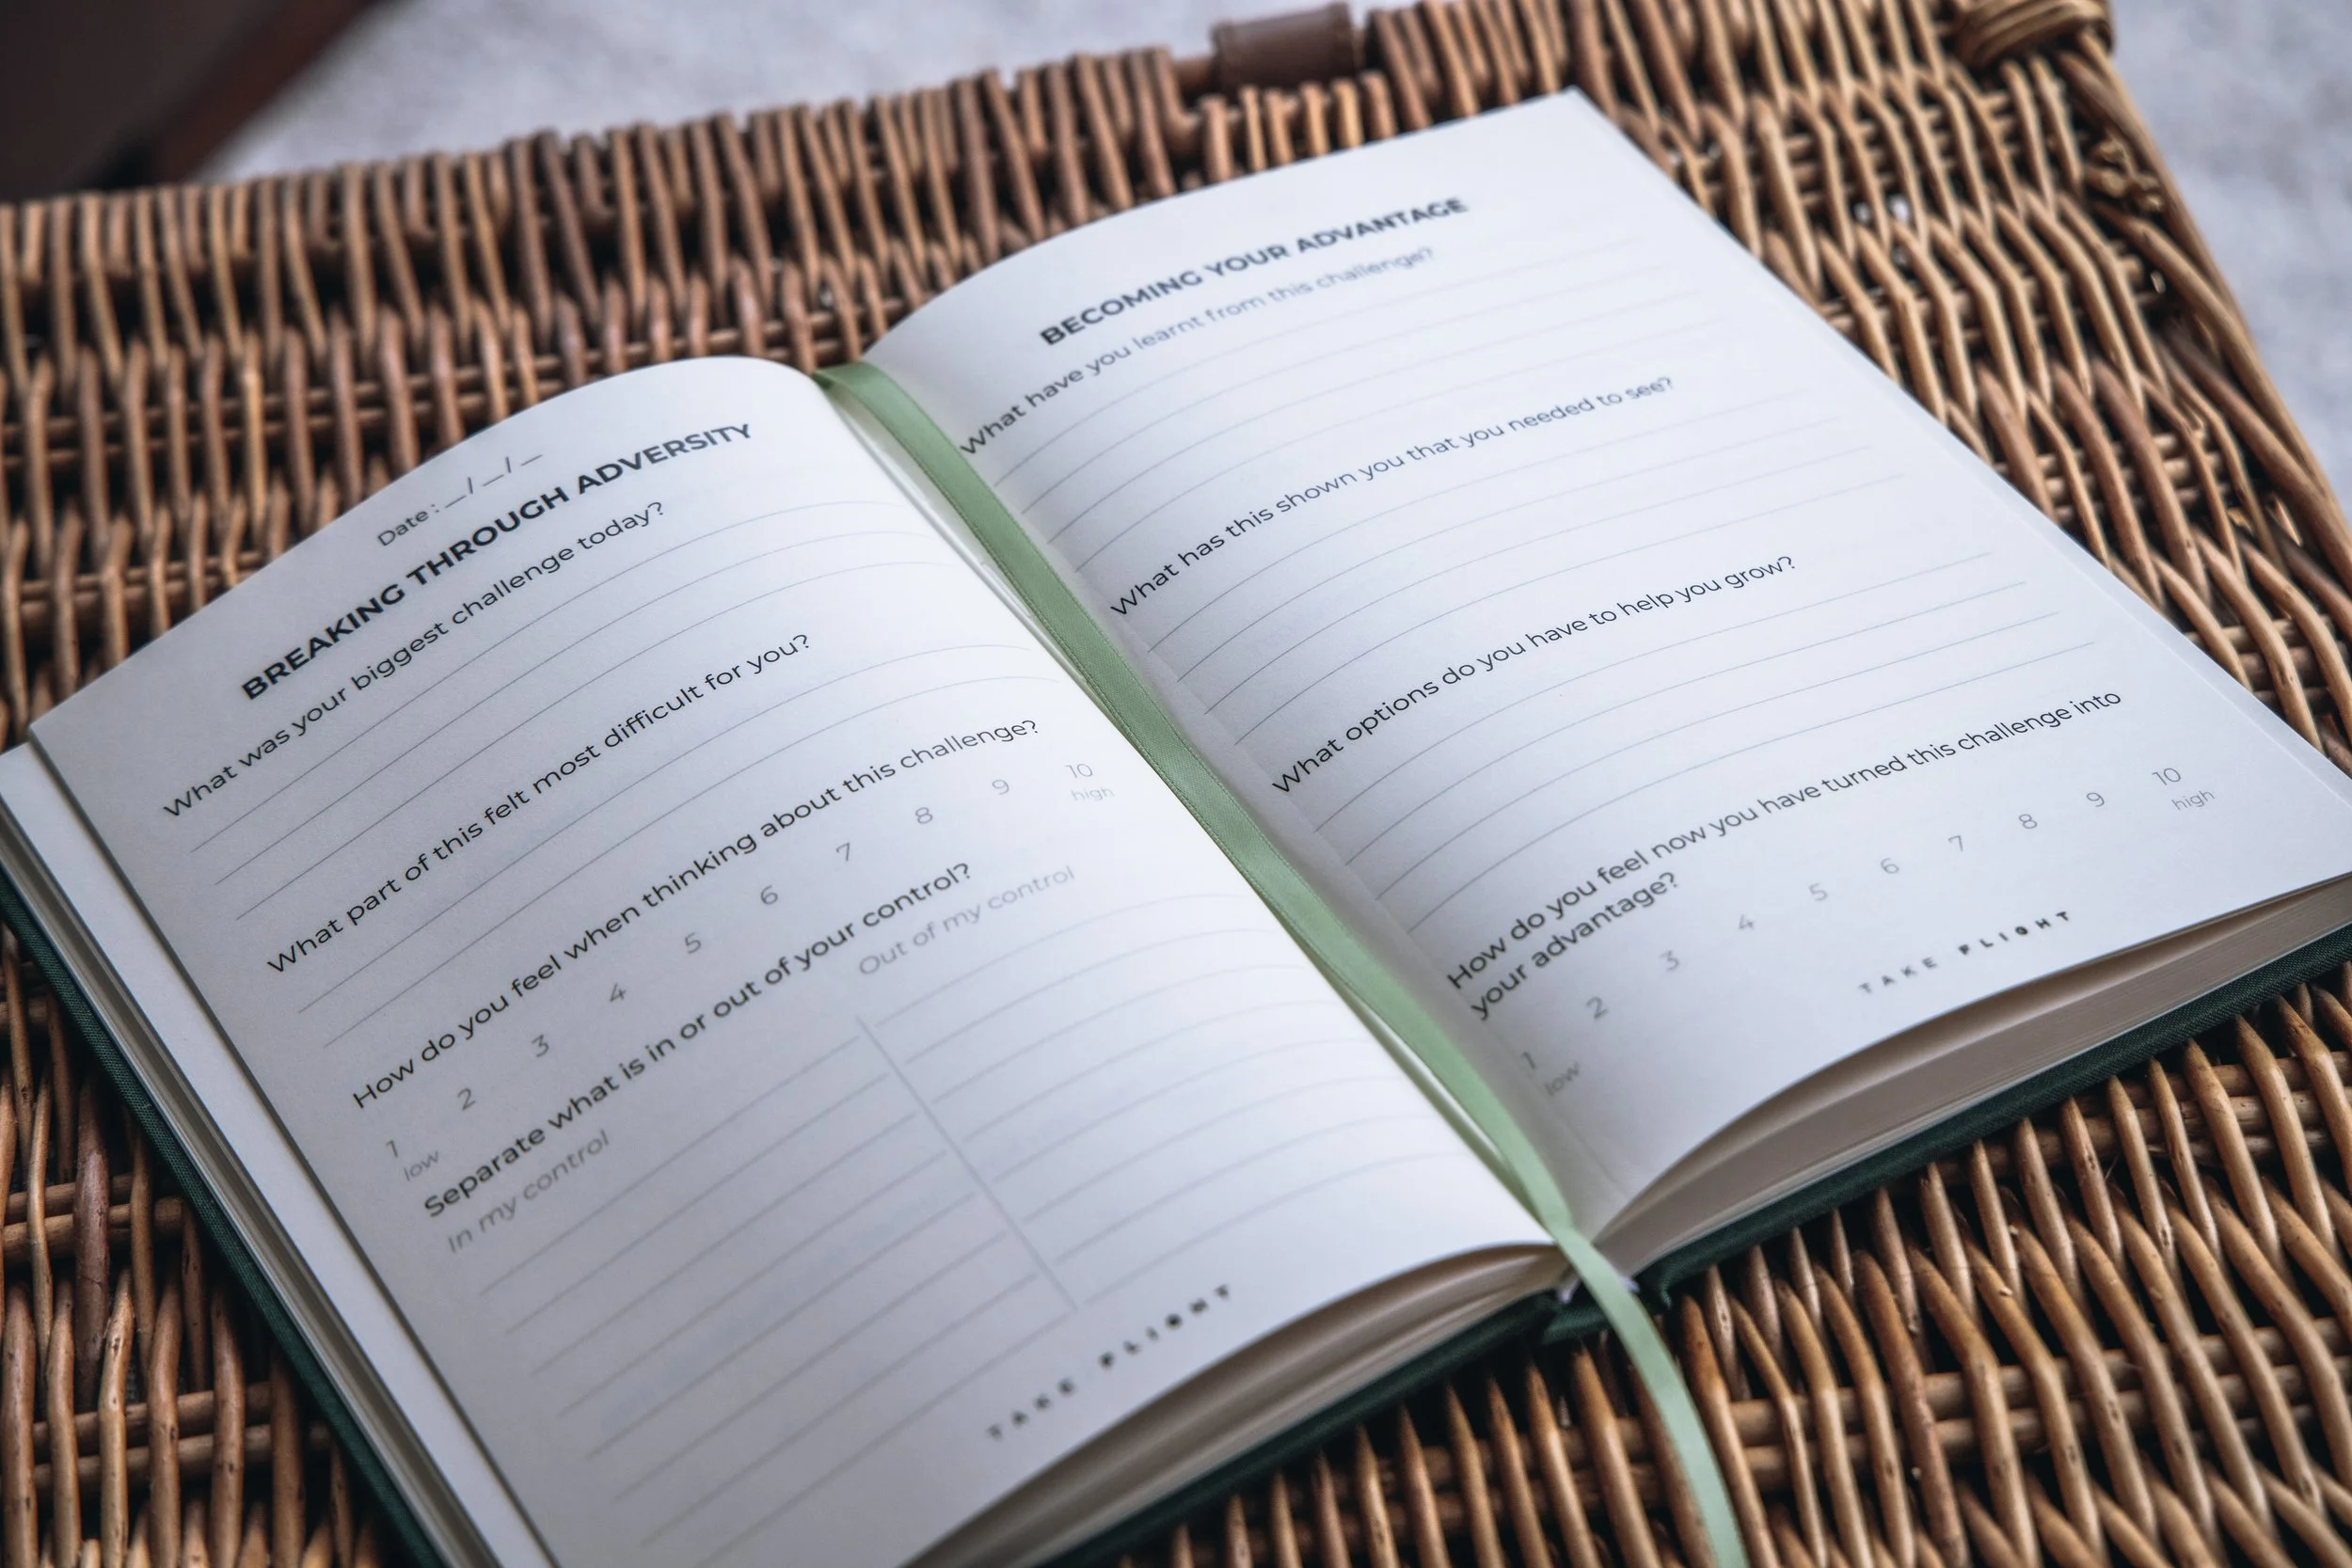 Date : _ / _ / _
BREAKING THROUGH ADVERSITY
What was your biggest challenge today?
What part of this felt most difficult for you?
How do you feel when thinking about this challenge?
1 2 3 4 5 6 7 8 9 10
low high
Separate what is in or out of your control?
In my control Out of my control
TAKE FLIGHT
BECOMING YOUR ADVANTAGE
What have you learnt from this challenge?
What has this shown you that you needed to see?
What options do you have to help you grow?
How do you feel now you have turned this challenge into
your advantage?
1 2 3 4 5 6 7 8 9 10
low high
TAKE FLIGHT